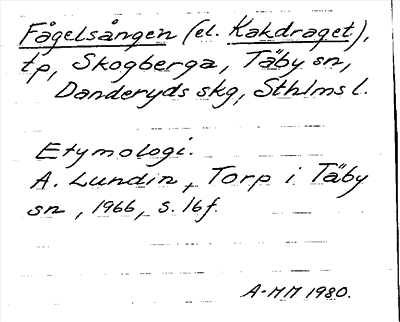 Fågelsången (el. Kakdraget),
tp, Skogberga, Täby sn,
Danderyds skg, Sthlms l.
Etymologi.
A. Lundin, Torp i Täby
sn, 1966, s. 16f.
A-MM 1980.